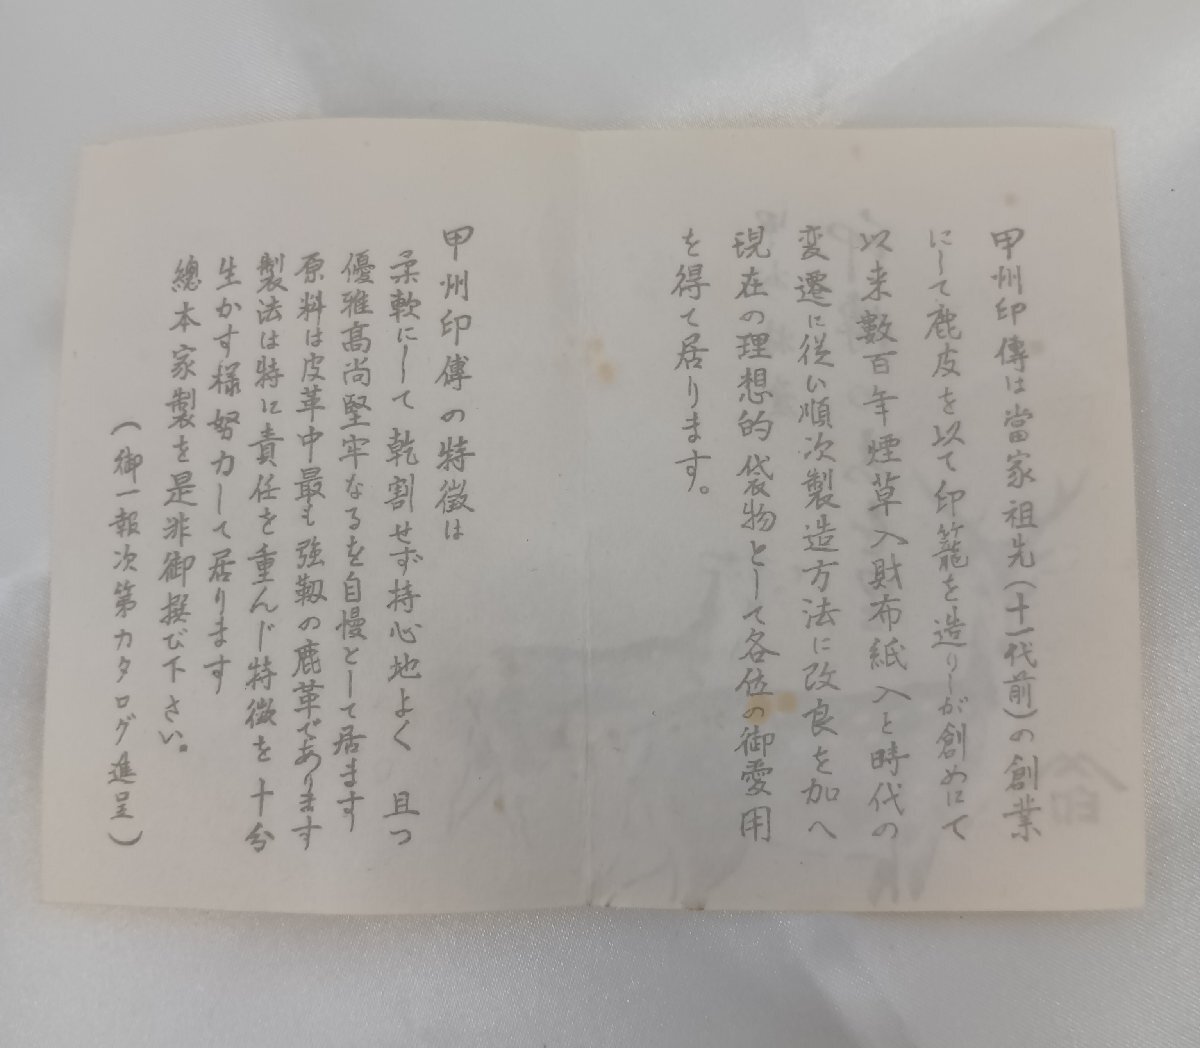 甲州印傳は當家祖先(十一代前)の創業
にして鹿皮を以て印籠を造りしが創めにて
以来數百年煙草入財布紙入と時代の
変遷に従い順次製造方法に改良を加へ
現在の理想的袋物として各位の御愛用
を得て居ります。
甲州印傳の特徴は
柔軟にして乾割せず持心地よく且つ
優雅高尚堅牢なるを自慢として居ます
原料は皮革中最も強靱の鹿革であります
製法は特に責任を重んじ特徴を十分
生かす様努力して居ります
總本家製を是非御撰び下さい。
(御一報次第カタログ進呈)